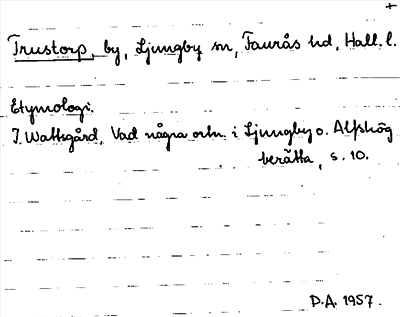 +
Trustorp, by, Ljungby sn, Faurås hd, Hall. l.
Etymologi.
J. Wattsgård, Vad några ortn. i Ljungby o. Alfshög
berätta, s. 10.
D.A. 1957.